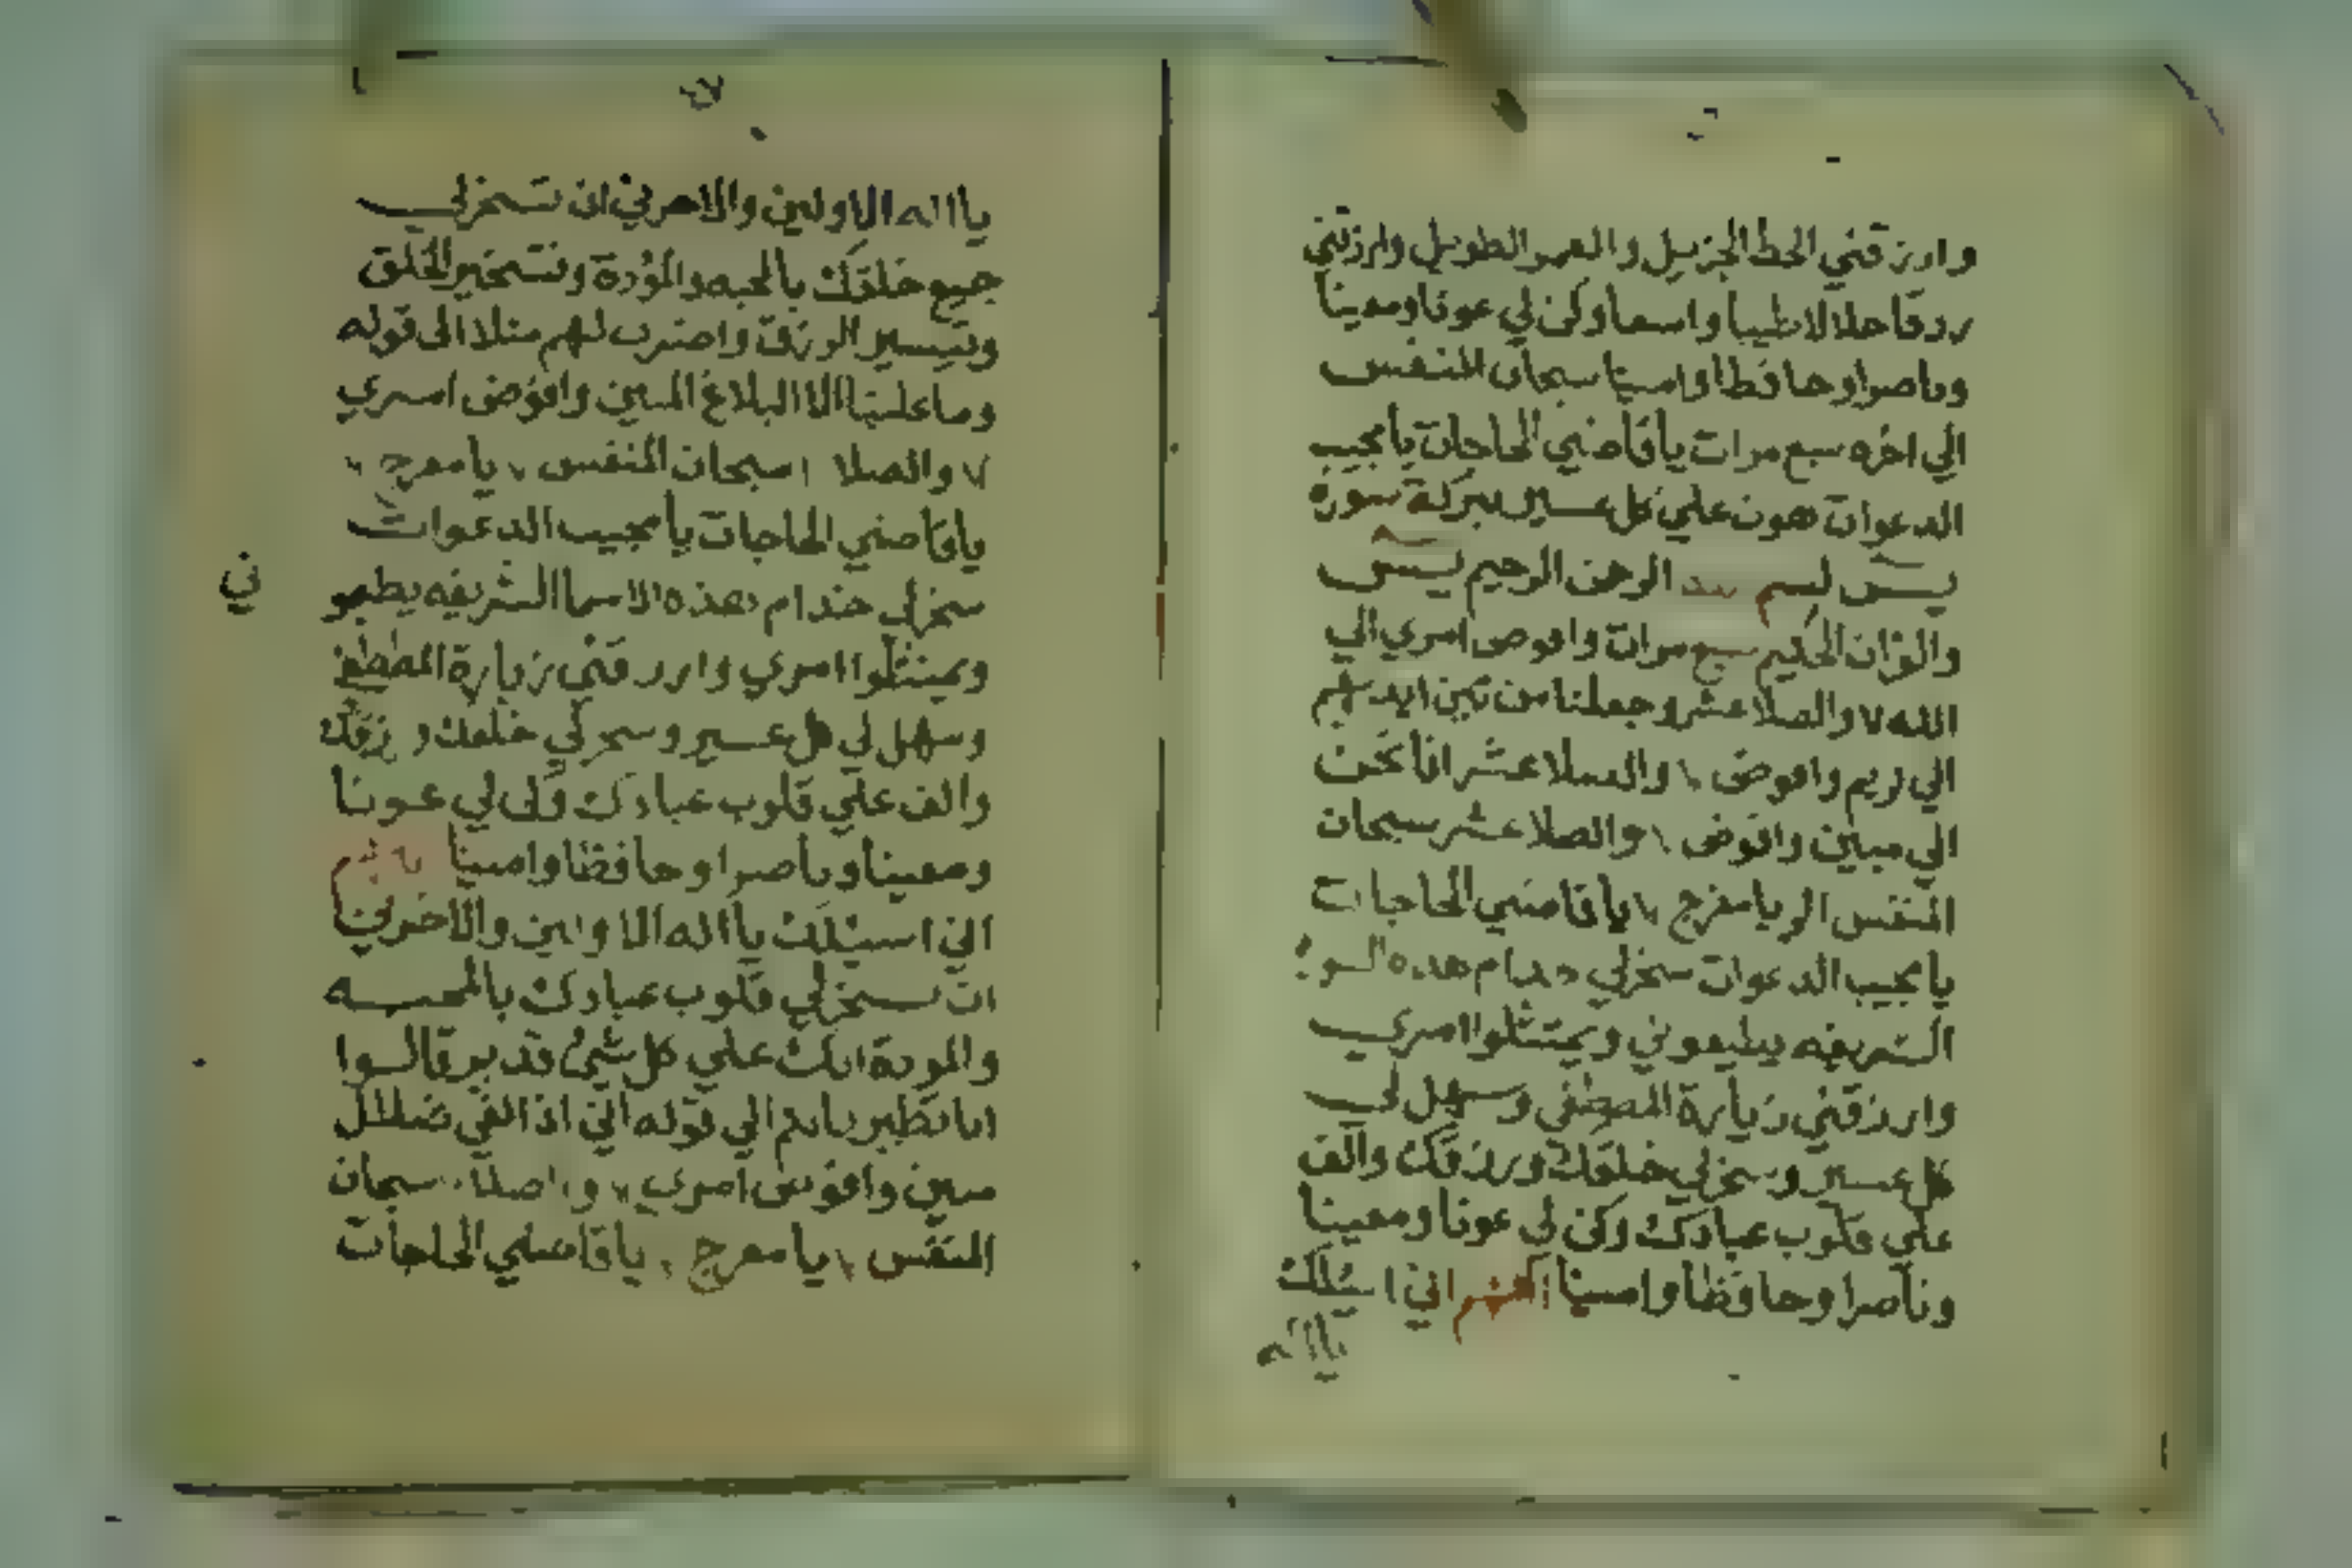 وارزقني الحظ الجزيل والعمر الطويل وارزقني
رزقا حلالا طيبا واسعا وكن لي عونا ومعينا
وناصرا وحافظا وامينا سبحان المنفس
الي اخره سبع مرات يا قاضي الحاجات يا مجيب
الدعوات هون علي كل عسير ببركة سورة
يس بسم الله الرحمن الرحيم يس
والقران الحكيم سبع مرات وافوض امري الي
الله ٧ والصلا عشر وجعلنا من بين ايديهم
الي كريم وافوض ٧ والصلا عشر انا نحن
الي مبين وافوض ٧ والصلا عشر سبحان
المنفس الر يا مفرج ٧ يا قاضي الحاجات
يا مجيب الدعوات سخر لي خدام هذه السور
الشريفه يطيعوني ويمتثلوا امري
وارزقني زيارة المصطفى وسهل لي
كل عسير وسخر لي خلقك ورزقك والف
علي قلوب عبادك وكن لي عونا ومعينا
وناصرا وحافظا وامينا اللهم اني اسئلك
يا الله
يا اله الاولين والاخرين ان تسخر لي
جميع خلقك بالمحبه والمودة وتسخير الخلق
وتيسير الرزق واضرب لهم مثلا الى قوله
وما علينا الا البلاغ المبين وافوض امري
٧ والصلا ١ سبحان المنفس ٧ يا مفرج ٧
يا قاضي الحاجات يا مجيب الدعوات
سخر لي خدام هذه الاسما الشريفه يطيعو
ني
ويمتثلوا امري وارزقني زيارة المصطفى
وسهل لي كل عسير وسخر لي خلقك ورزقك
والف علي قلوب عبادك وكن لي عونا
ومعينا وناصرا وحافظا وامينا اللهم
اني اسئلك يا اله الاولين والاخرين
ان تسخر لي قلوب عبادك بالمحبه
والمودة انك علي كل شئ قدير قالوا
انا تطيرنا بكم الي قوله اني اذا لفي ضلال
مبين وافوض امري ٧ والصلا سبحان
المنفس ٧ يا مفرج ٧ يا قاضي الحاجات